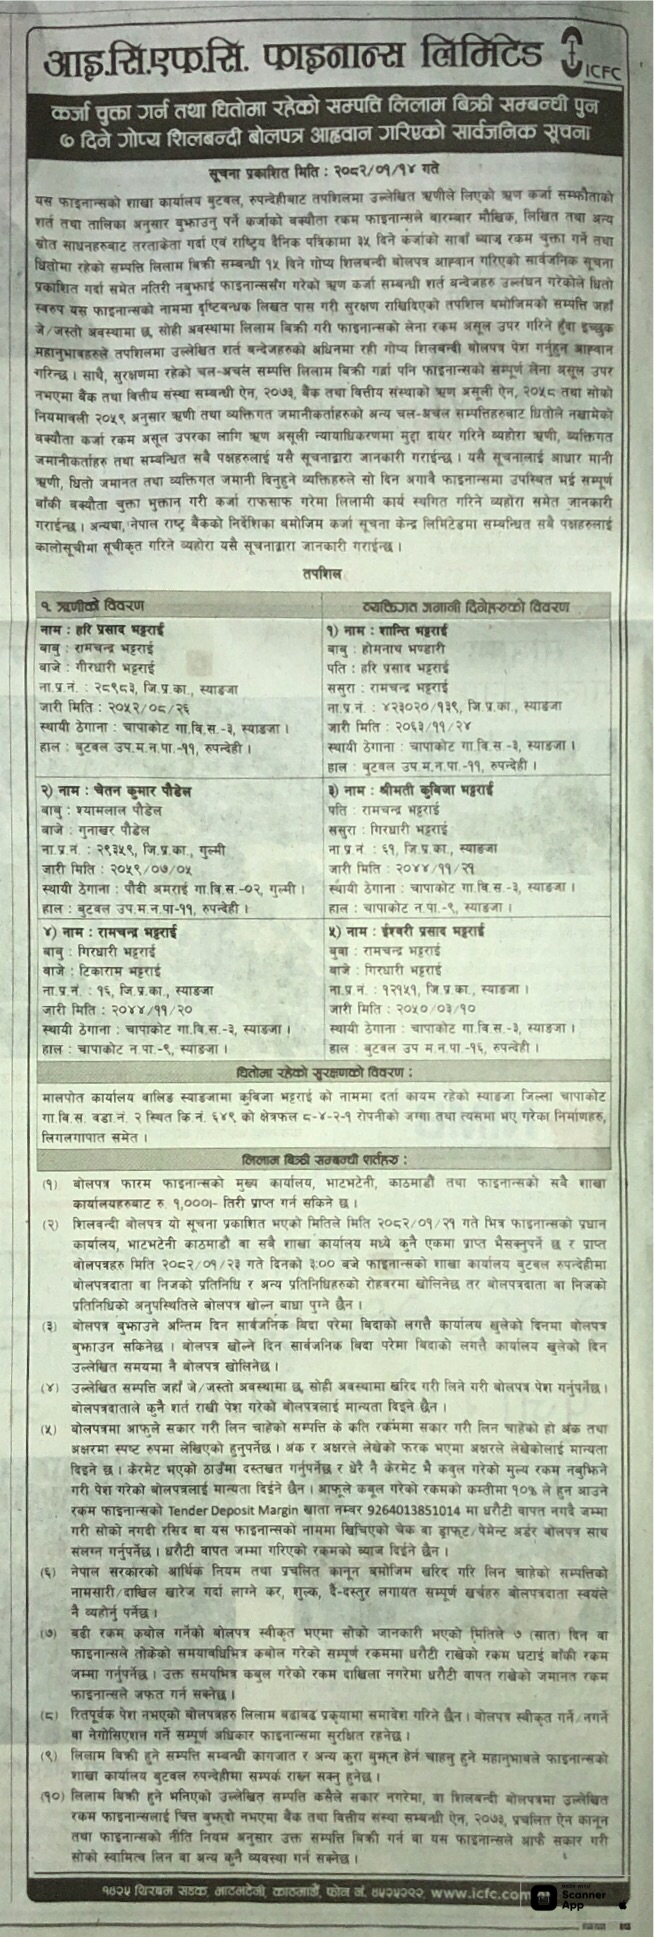 आइ.सि.एफ.सि. फाइनान्स लिमिटेड
ICFC
कर्जा चुक्ता गर्न तथा धितोमा रहेको सम्पत्ति लिलाम बिक्री सम्बन्धी पुन
७ दिने गोप्य शिलबन्दी बोलपत्र आह्वान गरिएको सार्वजनिक सूचना
सूचना प्रकाशित मिति : २०८२/०१/१४ गते
यस फाइनान्सको शाखा कार्यालय बुटवल, रुपन्देहीबाट तपशिलमा उल्लेखित ऋणीले लिएको ऋण कर्जा सम्झौताको
शर्त तथा तालिका अनुसार बुझाउनु पर्ने कर्जाको बक्यौता रकम फाइनान्सले बारम्बार मौखिक, लिखित तथा अन्य
स्रोत साधनहरुबाट तरताकेता गर्दा एवं राष्ट्रिय दैनिक पत्रिकामा ३५ दिने कर्जाको सावाँ ब्याज रकम चुक्ता गर्ने तथा
धितोमा रहेको सम्पत्ति लिलाम बिक्री सम्बन्धी १५ दिने गोप्य शिलबन्दी बोलपत्र आह्वान गरिएको सार्वजनिक सूचना
प्रकाशित गर्दा समेत नतिरी नबुझाई फाइनान्ससँग गरेको ऋण कर्जा सम्बन्धी शर्त बन्देजहरु उल्लंघन गरेकोले धितो
स्वरुप यस फाइनान्सको नाममा दृष्टिबन्धक लिखत पास गरी सुरक्षण राखिदिएको तपशिल बमोजिमको सम्पत्ति जहाँ
जे/जस्तो अवस्थामा छ, सोही अवस्थामा लिलाम बिक्री गरी फाइनान्सको लेना रकम असूल उपर गरिने हुँदा इच्छुक
महानुभावहरुले तपशिलमा उल्लेखित शर्त बन्देजहरुको अधिनमा रही गोप्य शिलबन्दी बोलपत्र पेश गर्नुहुन आह्वान
गरिन्छ । साथै, सुरक्षणमा रहेको चल-अचल सम्पत्ति लिलाम बिक्री गर्दा पनि फाइनान्सको सम्पूर्ण लेना असूल उपर
नभएमा बैंक तथा वित्तीय संस्था सम्बन्धी ऐन, २०७३, बैंक तथा वित्तीय संस्थाको ऋण असूली ऐन, २०५८ तथा सोको
नियमावली २०५९ अनुसार ऋणी तथा व्यक्तिगत जमानीकर्ताहरुको अन्य चल-अचल सम्पत्तिहरुबाट धितोले नखामेको
बक्यौता कर्जा रकम असूल उपरका लागि ऋण असूली न्यायाधिकरणमा मुद्दा दायर गरिने व्यहोरा ऋणी, व्यक्तिगत
जमानीकर्ताहरु तथा सम्बन्धित सबै पक्षहरुलाई यसै सूचनाद्वारा जानकारी गराईन्छ । यसै सूचनालाई आधार मानी
ऋणी, धितो जमानत तथा व्यक्तिगत जमानी दिनुहुने व्यक्तिहरुले सो दिन अगावै फाइनान्समा उपस्थित भई सम्पूर्ण
बाँकी बक्यौता चुक्ता भुक्तान गरी कर्जा राफसाफ गरेमा लिलामी कार्य स्थगित गरिने व्यहोरा समेत जानकारी
गराईन्छ । अन्यथा, नेपाल राष्ट्र बैंकको निर्देशिका बमोजिम कर्जा सूचना केन्द्र लिमिटेडमा सम्बन्धित सबै पक्षहरुलाई
कालोसूचीमा सूचीकृत गरिने व्यहोरा यसै सूचनाद्वारा जानकारी गराईन्छ ।
तपशिल
१. ऋणीको विवरण
नाम : हरि प्रसाद भट्टराई
बाबु : रामचन्द्र भट्टराई
बाजे : गीरधारी भट्टराई
ना.प्र.नं. : २८९८३, जि.प्र.का., स्याङजा
जारी मिति : २०५२/०८/२६
स्थायी ठेगाना : चापाकोट गा.वि.स.-३, स्याङजा ।
हाल : बुटवल उप.म.न.पा.-११, रुपन्देही ।
व्यक्तिगत जमानी दिनेहरुको विवरण
१) नाम : शान्ति भट्टराई
बाबु : होमनाथ भण्डारी
पति : हरि प्रसाद भट्टराई
ससुरा : रामचन्द्र भट्टराई
ना.प्र.नं. : ४२३०२०/१३९, जि.प्र.का., स्याङजा
जारी मिति : २०६३/११/२४
स्थायी ठेगाना : चापाकोट गा.वि.स.-३, स्याङजा ।
हाल : बुटवल उप.म.न.पा.-११, रुपन्देही ।
२) नाम : चेतन कुमार पौडेल
बाबु : श्यामलाल पौडेल
बाजे : गुनाखर पौडेल
ना.प्र.नं. : २९३५९, जि.प्र.का., गुल्मी
जारी मिति : २०५९/०७/०५
स्थायी ठेगाना : पौदी अमराई गा.वि.स.-०२, गुल्मी ।
हाल : बुटवल उप.म.न.पा-११, रुपन्देही ।
३) नाम : श्रीमती कुबिजा भट्टराई
पति : रामचन्द्र भट्टराई
ससुरा : गिरधारी भट्टराई
ना.प्र.नं. : ६१, जि.प्र.का., स्याङजा
जारी मिति : २०४४/११/२१
स्थायी ठेगाना : चापाकोट गा.वि.स.-३, स्याङजा ।
हाल : चापाकोट न.पा.-९, स्याङजा ।
४) नाम : रामचन्द्र भट्टराई
बाबु : गिरधारी भट्टराई
बाजे : टिकाराम भट्टराई
ना.प्र.नं. : १६, जि.प्र.का., स्याङजा
जारी मिति : २०४४/११/२०
स्थायी ठेगाना : चापाकोट गा.वि.स.-३, स्याङजा ।
हाल : चापाकोट न.पा.-९, स्याङजा ।
५) नाम : ईश्वरी प्रसाद भट्टराई
बुबा : रामचन्द्र भट्टराई
बाजे : गिरधारी भट्टराई
ना.प्र.नं. : १२१५१, जि.प्र.का., स्याङजा ।
जारी मिति : २०५०/०३/१०
स्थायी ठेगाना : चापाकोट गा.वि.स.-३, स्याङजा ।
हाल : बुटवल उप म.न.पा.-१६, रुपन्देही ।
धितोमा रहेको सुरक्षणको विवरण :
मालपोत कार्यालय वालिङ स्याङजामा कुबिजा भट्टराई को नाममा दर्ता कायम रहेको स्याङजा जिल्ला चापाकोट
गा.वि.स. वडा.नं. २ स्थित कि.नं. ६४९ को क्षेत्रफल ८-४-२-१ रोपनीको जग्गा तथा त्यसमा भए गरेका निर्माणहरु,
लिगलगापात समेत ।
लिलाम बिक्री सम्बन्धी शर्तहरु :
(१) बोलपत्र फारम फाइनान्सको मुख्य कार्यालय, भाटभटेनी, काठमाडौं तथा फाइनान्सको सबै शाखा
कार्यालयहरुबाट रु. १,०००।- तिरी प्राप्त गर्न सकिने छ ।
(२) शिलबन्दी बोलपत्र यो सूचना प्रकाशित भएको मितिले मिति २०८२/०१/२१ गते भित्र फाइनान्सको प्रधान
कार्यालय, भाटभटेनी काठमाडौं वा सबै शाखा कार्यालय मध्ये कुनै एकमा प्राप्त भैसक्नुपर्ने छ र प्राप्त
बोलपत्रहरु मिति २०८२/०१/२३ गते दिनको ३:०० बजे फाइनान्सको शाखा कार्यालय बुटवल रुपन्देहीमा
बोलपत्रदाता वा निजको प्रतिनिधि र अन्य प्रतिनिधिहरुको रोहवरमा खोलिनेछ तर बोलपत्रदाता वा निजको
प्रतिनिधिको अनुपस्थितिले बोलपत्र खोल्न बाधा पुग्ने छैन ।
(३) बोलपत्र बुझाउने अन्तिम दिन सार्वजनिक बिदा परेमा बिदाको लगत्तै कार्यालय खुलेको दिनमा बोलपत्र
बुझाउन सकिनेछ । बोलपत्र खोल्ने दिन सार्वजनिक बिदा परेमा बिदाको लगत्तै कार्यालय खुलेको दिन
उल्लेखित समयमा नै बोलपत्र खोलिनेछ ।
(४) उल्लेखित सम्पत्ति जहाँ जे/जस्तो अवस्थामा छ, सोही अवस्थामा खरिद गरी लिने गरी बोलपत्र पेश गर्नुपर्नेछ ।
बोलपत्रदाताले कुनै शर्त राखी पेश गरेको बोलपत्रलाई मान्यता दिइने छैन ।
(५) बोलपत्रमा आफुले सकार गरी लिन चाहेको सम्पत्ति के कति रकममा सकार गरी लिन चाहेको हो अंक तथा
अक्षरमा स्पष्ट रुपमा लेखिएको हुनुपर्नेछ । अंक र अक्षरले लेखेको फरक भएमा अक्षरले लेखेकोलाई मान्यता
दिइने छ । केरमेट भएको ठाउँमा दस्तखत गर्नुपर्नेछ र धेरै नै केरमेट भै कबुल गरेको मूल्य रकम नबुझिने
गरी पेश गरेको बोलपत्रलाई मान्यता दिईने छैन । आफूले कबुल गरेको रकमको कम्तीमा १०% ले हुन आउने
रकम फाइनान्सको Tender Deposit Margin खाता नम्बर 9264013851014 मा धरौटी वापत नगदै जम्मा
गरी सोको नगदी रसिद वा यस फाइनान्सको नाममा खिचिएको चेक वा ड्राफ्ट/पेमेन्ट अर्डर बोलपत्र साथ
संलग्न गर्नुपर्नेछ । धरौटी वापत जम्मा गरिएको रकमको ब्याज दिईने छैन ।
(६) नेपाल सरकारको आर्थिक नियम तथा प्रचलित कानून बमोजिम खरिद गरि लिन चाहेको सम्पत्तिको
नामसारी/दाखिल खारेज गर्दा लाग्ने कर, शुल्क, दै-दस्तुर लगायत सम्पूर्ण खर्चहरु बोलपत्रदाता स्वयंले
नै व्यहोर्नु पर्नेछ ।
(७) बढी रकम कबोल गर्नेको बोलपत्र स्वीकृत भएमा सोको जानकारी भएको मितिले ७ (सात) दिन वा
फाइनान्सले तोकेको समयावधिभित्र कबोल गरेको सम्पूर्ण रकममा धरौटी राखेको रकम घटाई बाँकी रकम
जम्मा गर्नुपर्नेछ । उक्त समयभित्र कबुल गरेको रकम दाखिला नगरेमा धरौटी वापत राखेको जमानत रकम
फाइनान्सले जफत गर्न सक्नेछ ।
(८) रितपूर्वक पेश नभएको बोलपत्रहरु लिलाम बढाबढ प्रक्रयामा समावेश गरिने छैन । बोलपत्र स्वीकृत गर्ने/नगर्ने
वा नेगोसिएशन गर्ने सम्पूर्ण अधिकार फाइनान्समा सुरक्षित रहनेछ ।
(९) लिलाम बिक्री हुने सम्पत्ति सम्बन्धी कागजात र अन्य कुरा बुझ्न हेर्न चाहनु हुने महानुभावले फाइनान्सको
शाखा कार्यालय बुटवल रुपन्देहीमा सम्पर्क राख्न सक्नु हुनेछ ।
(१०) लिलाम बिक्री हुने भनिएको उल्लेखित सम्पत्ति कसैले सकार नगरेमा, वा शिलबन्दी बोलपत्रमा उल्लेखित
रकम फाइनान्सलाई चित्त बुझ्दो नभएमा बैंक तथा वित्तीय संस्था सम्बन्धी ऐन, २०७३, प्रचलित ऐन कानून
तथा फाइनान्सको नीति नियम अनुसार उक्त सम्पत्ति बिक्री गर्न वा यस फाइनान्सले आफै सकार गरी
सोको स्वामित्व लिन वा अन्य कुनै व्यवस्था गर्न सक्नेछ ।
१७२५ थिरबम सडक, भाटभटेनी, काठमाडौं, फोन नं. ४५२५२९२, www.icfc.com
Scanner
App